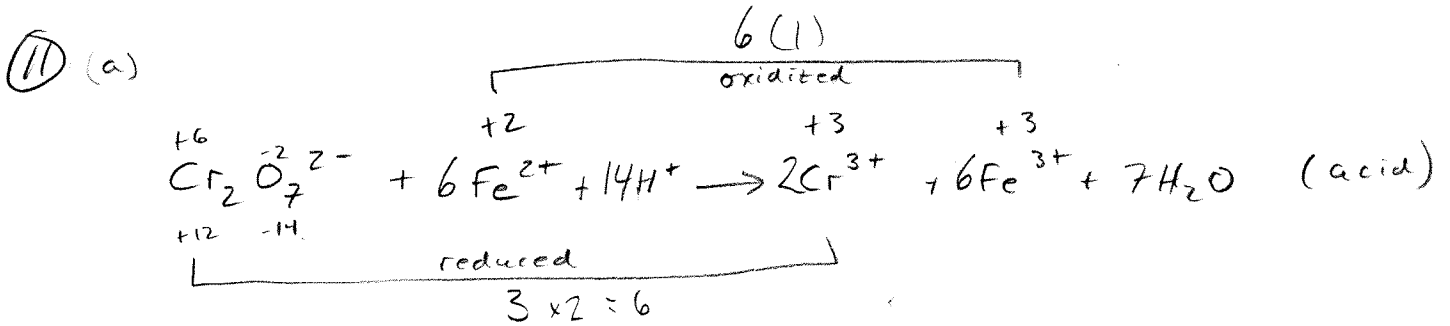 6 (1)
11 (a)
oxidited
+6 +2 +3 +3
Cr₂O₇²⁻ + 6Fe²⁺ + 14H⁺ → 2Cr³⁺ + 6Fe³⁺ + 7H₂O (acid)
-2
+12 -14
reduced
3 x2 = 6